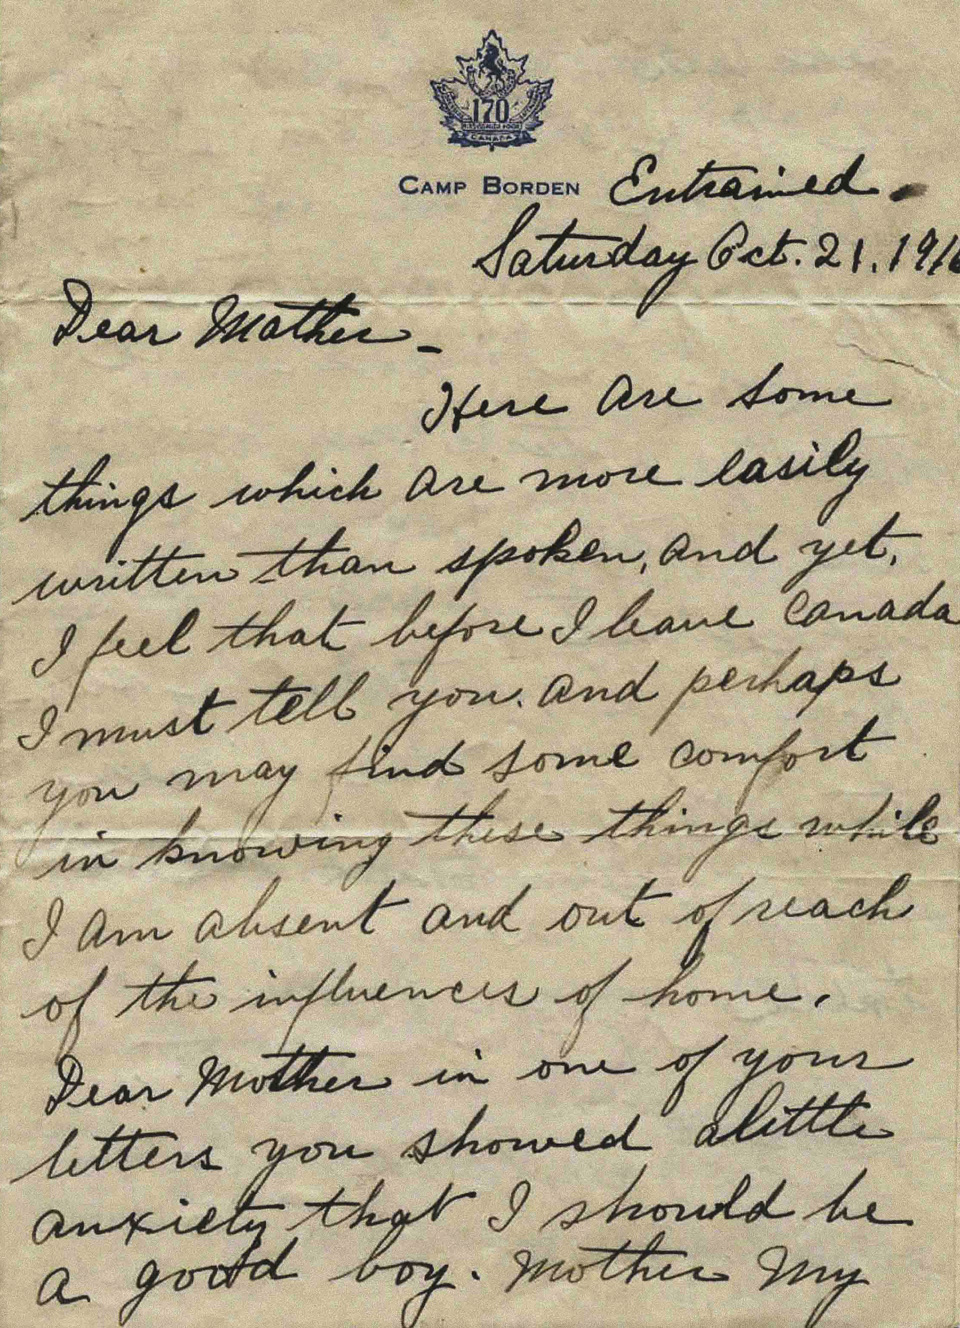 170
CANADA
CAMP BORDEN Entrained.
Saturday Oct. 21. 1916
Dear Mother –
Here are some
things which are more easily
written than spoken, and yet,
I feel that before I leave Canada
I must tell you. and perhaps
you may find some comfort
in knowing these things while
I am absent and out of reach
of the influences of home.
Dear Mother in one of your
letters you showed a little
anxiety that I should be
a good boy. Mother My